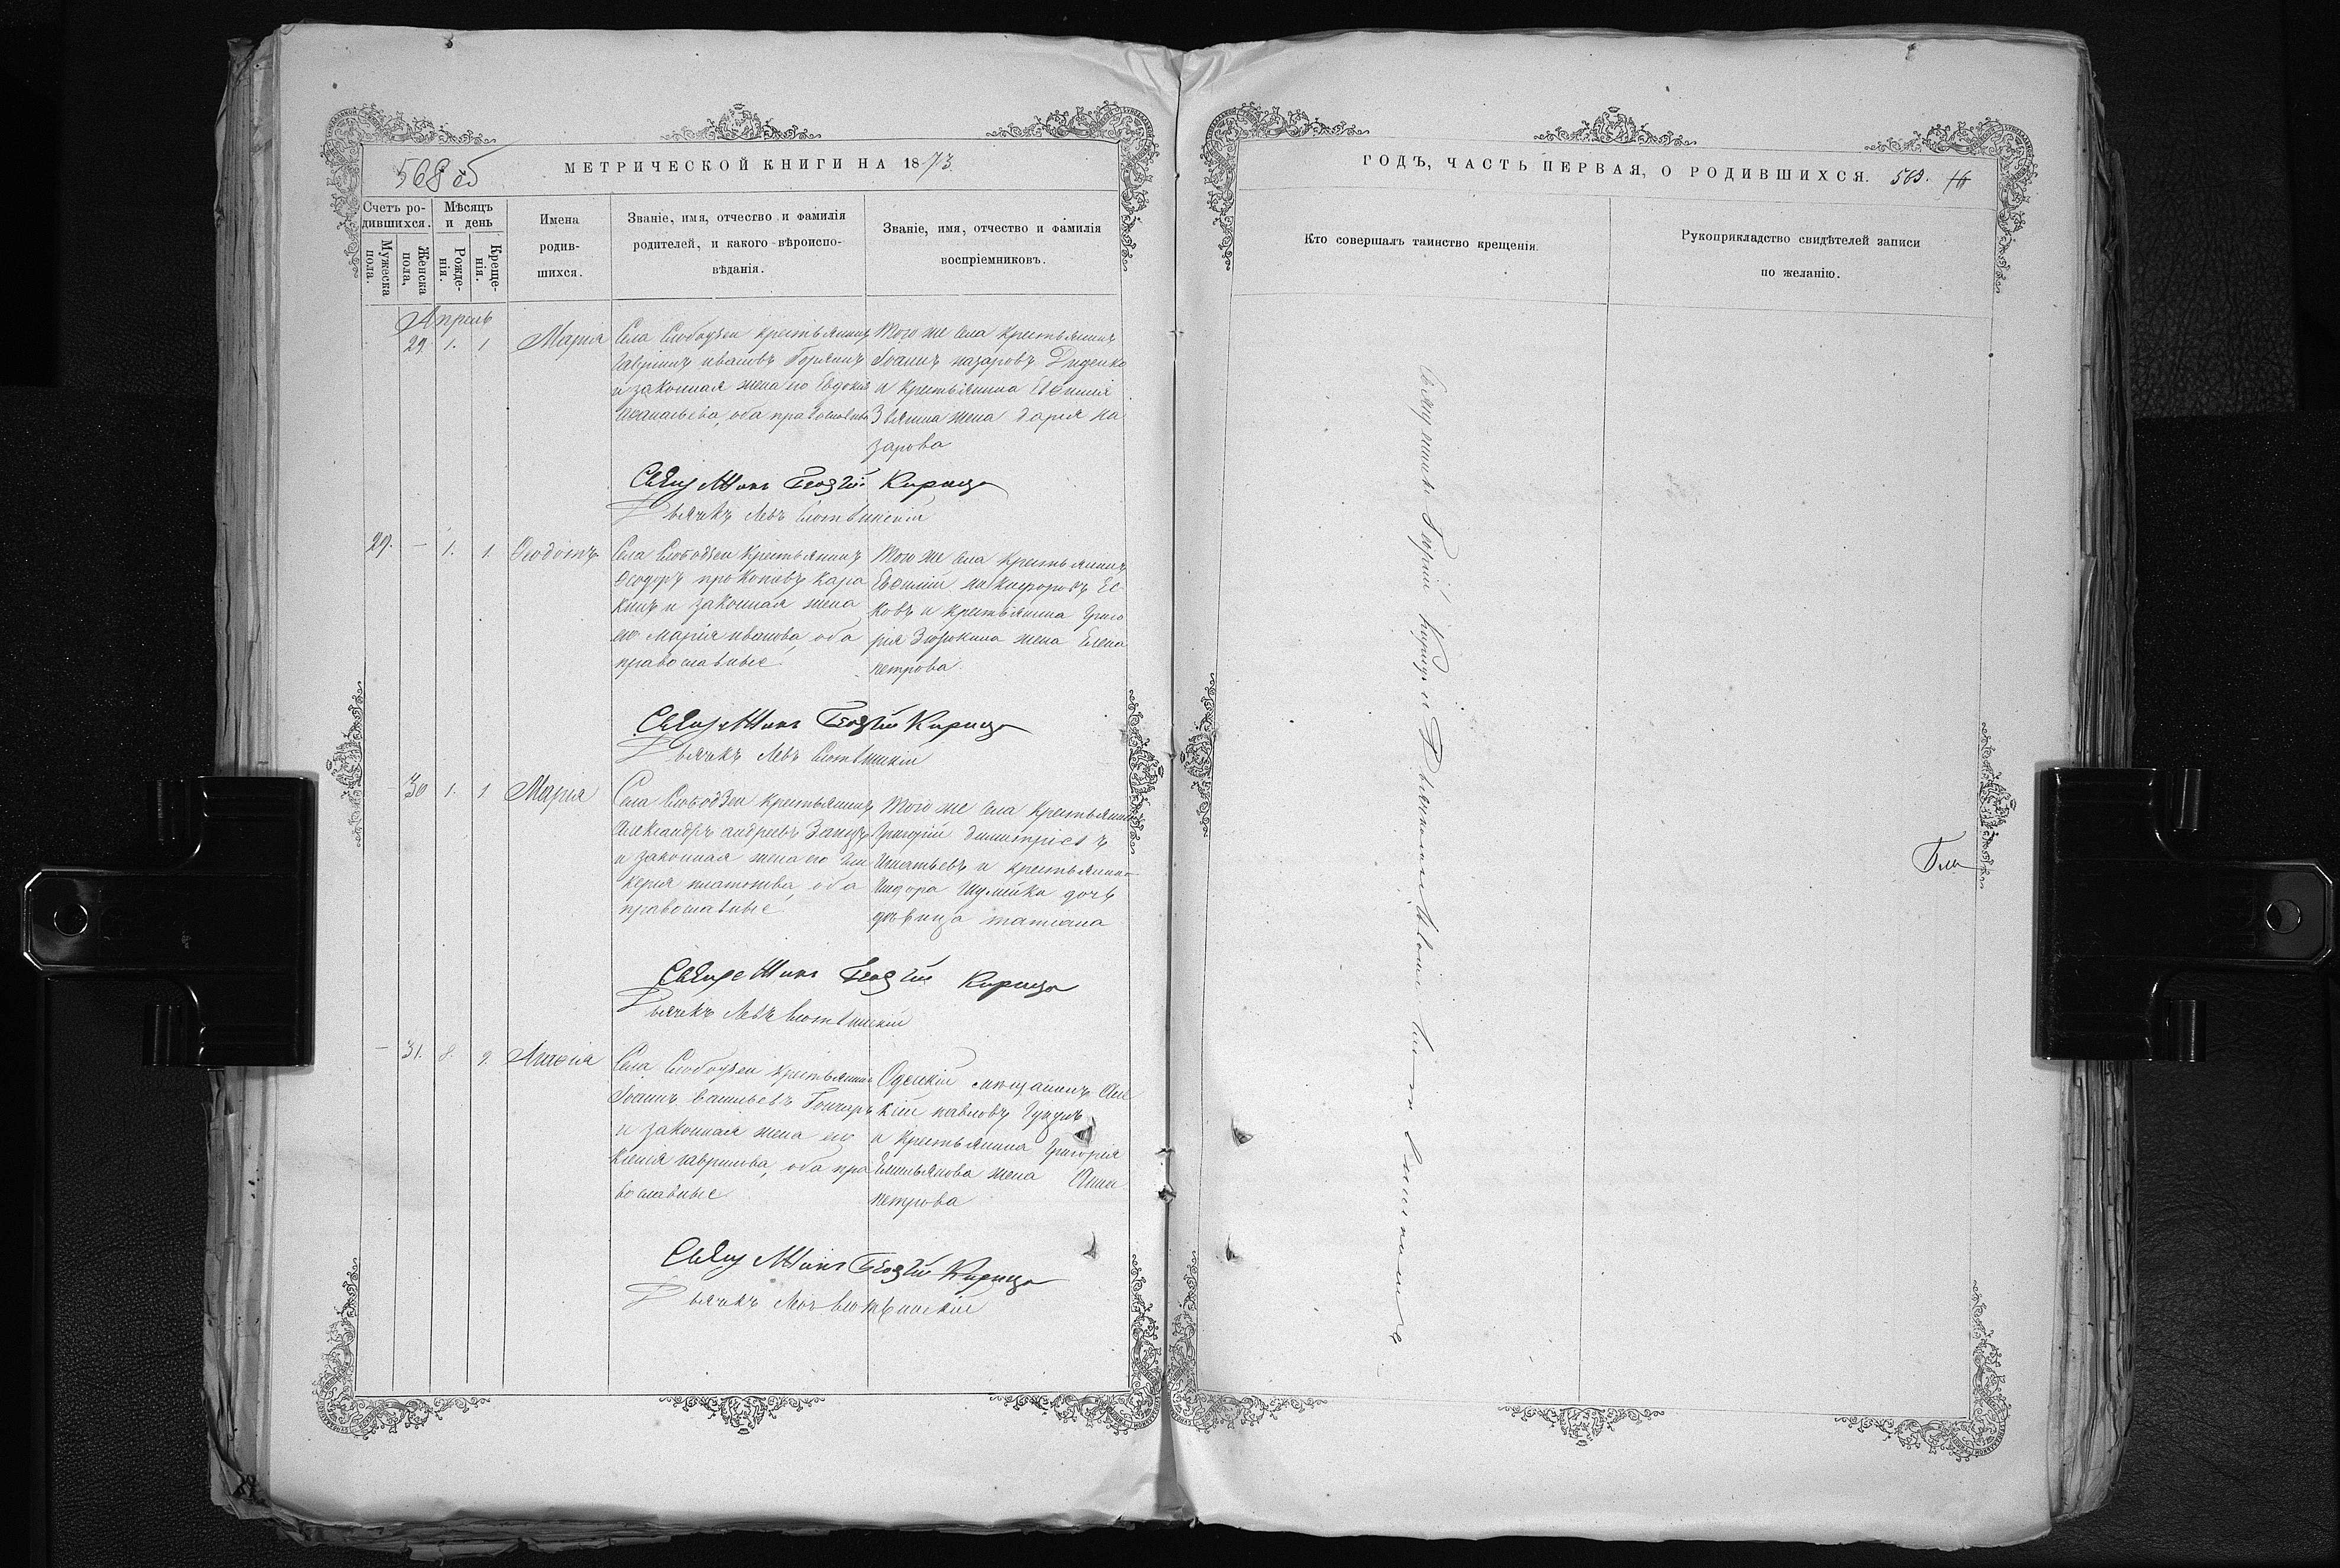 568 об
МЕТРИЧЕСКОЙ КНИГИ НА 1873
Счетъ родившихся.
Мужеска пола.
Женска пола,
Мѣсяцъ и день
Рожденія.
Крещенія.
Имена
родив-
шихся.
Званіе, имя, отчество и фамилія
родителей, и какого вѣроиспо-
вѣданія.
Званіе, имя, отчество и фамилія
воспріемниковъ.
Апрель
29. 1. 1 Мария
Села Слободзеи крестьянинъ
Гавріилъ ивановъ
и законная жена его Евдокія
Афанасьева, оба православные
Того же села крестьянинъ
Іоаннъ назаровъ Диденко
и крестьянина Евфимія
жена дарія на
зарова
Священникъ Георгій Кирица
Дьячекъ Левъ
29. — 1. 1. Феодотъ
Села Слободзеи крестьянинъ
Феодоръ прокопіевъ Кара
кинъ и законная жена
его Марія иванова, оба
православные
Того же села крестьянинъ
Евфимій никифоровъ Ес
ковъ и крестьянина Григо
рія жена Елена
петрова.
Священникъ Георгій Кирица
Дьячекъ Левъ
30 1. 1 Мария
Села Слободзеи крестьянинъ
Александръ андреевъ
и законная жена его Гли
керия платонова, оба
православные
Того же села крестьянинъ
Григорій димитріевъ
Игнатьевъ и крестьянина
Исидора Шулейки дочь
дѣвица татиана
Священникъ Георгій Кирица
Дьячекъ Левъ
— 31. 8. 9. Агафія
Села Слободзеи крестьянинъ
Іоаннъ васильевъ Гончаръ
и законная жена его
Ксенія гаврилова, оба пра
вославные
Одескій мещанинъ
павловъ
и крестьянина Григорія
Емельянова жена Анна
петрова
Священникъ Георгій Кирица
Дьячекъ Левъ
ГОДЪ, ЧАСТЬ ПЕРВАЯ, О РОДИВШИХСЯ. 569. 76
Кто совершалъ таинство крещенія.
Рукоприкладство свидѣтелей записи
по желанію.
Священникъ Георгій Кирица и Дьячкомъ